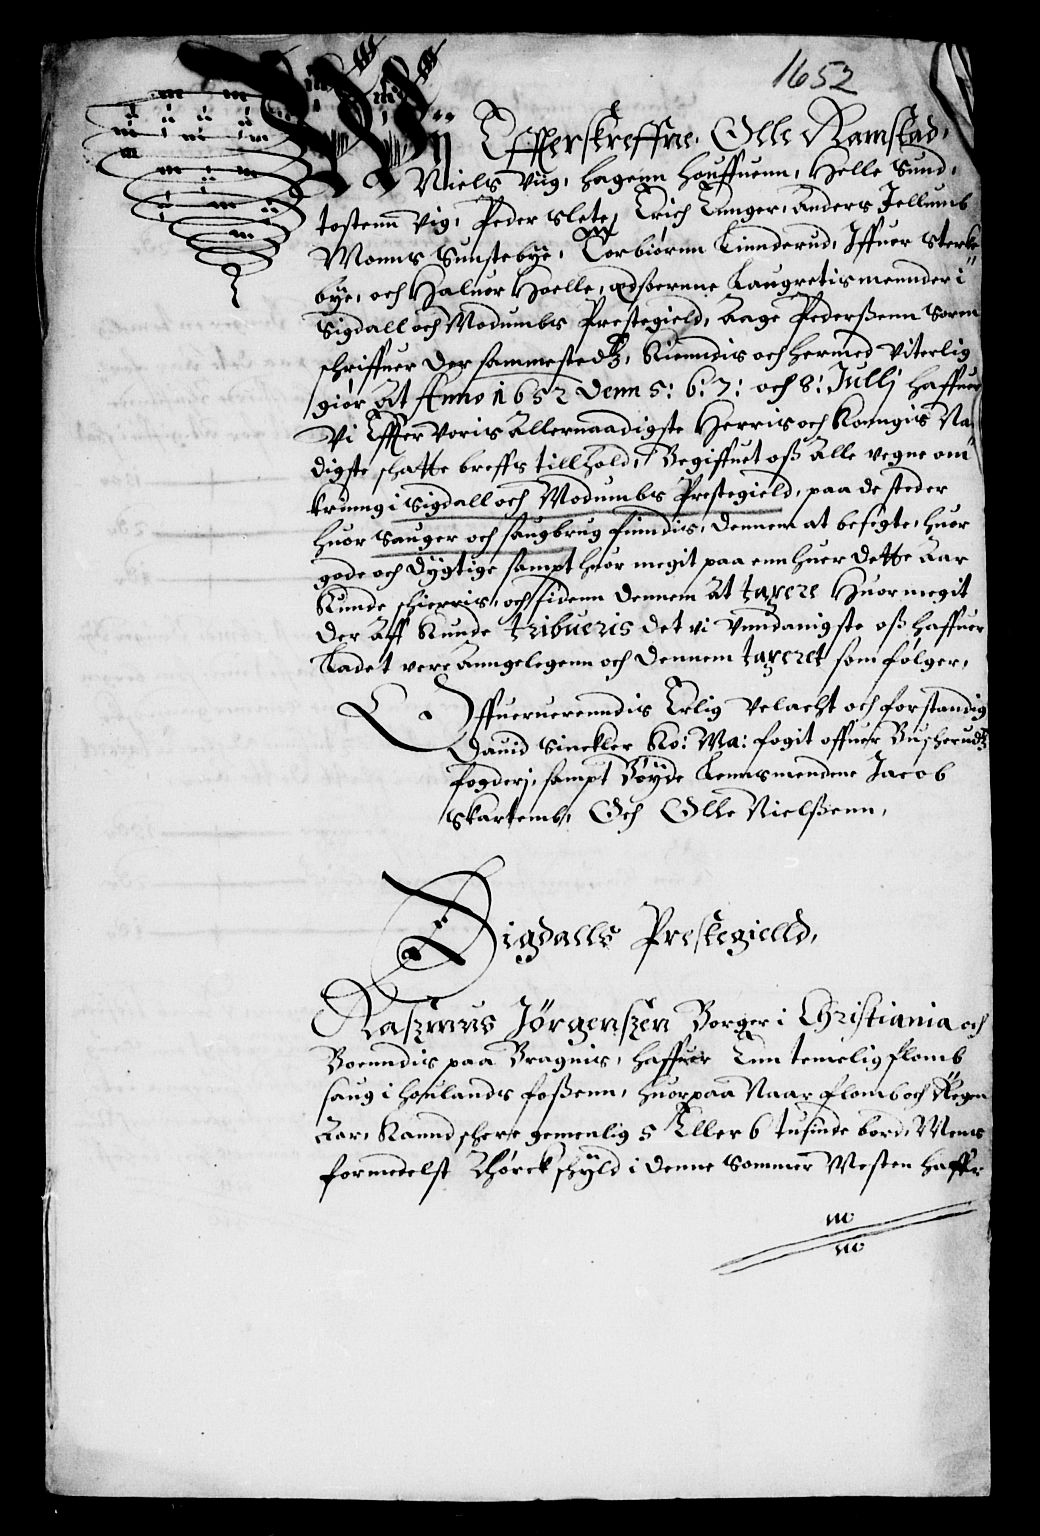 1652
Wij Effterskreffne, Olle Ramstad,
Niels Viig, Hagenn Houffuenn, Helle Sund,
tostenn Vig, Peder Slete, Erich Enger, Anders Jellumb
Monns Sunstebÿe, Torbiørnn Linnderud, Iffuer Sterke
bÿe, och Haluor Hoelle, edßornne Laugretismennder i
Sigdall och Modumbs Prestegield, Aage Pederßenn Sorrn
schriffuer der sammestedtz, Kienndis och hermed Viterlig
giør At Anno 1652 Denn 5: 6: 7: och 8: Julij haffuer
Vi Effter Voris Allernaadigste Herris och Konngis Na
digste schatte breffs tillhold, Begiffuet oß Alle vegne om
kring i Sigdall och Modumbs Prestegield, paa de steder
huor Sauger och saugbrug finndis, Dennem at besigte, huor
gode och Dÿgtige sampt huor megit paa enn huer Dette Aar
Kunde schierris, och sidenn Dennem At taxere Huor megit
Der Aff Kunde tribueris det vi Unndanigste oß haffuer
Ladet vere Anngelegenn och Dennem taxeret som følger,
Offueruerenndis Erlig Velacht och forstandig
Dauid Sinckler Ko: Ma: fogit offuer Buscherudtz
fogderj, sampt Bøÿde Lennsmendene Jacob
Skartemb, Och Olle Nielßenn,
Sigdalls Prestegielld,
Raszmus Jörgenszen Borger i Christiania och
Boenndis paa Bragnis, haffuer Enn temelig flomb
saug i Houlands foßenn, huorpaa Naar flomb och Regn
Aar, Kannd scherre gemenlig 5 Eller 6 tusinde bord, Mens
formedelst Thørck schÿld i denne Sommer Mesten haffr